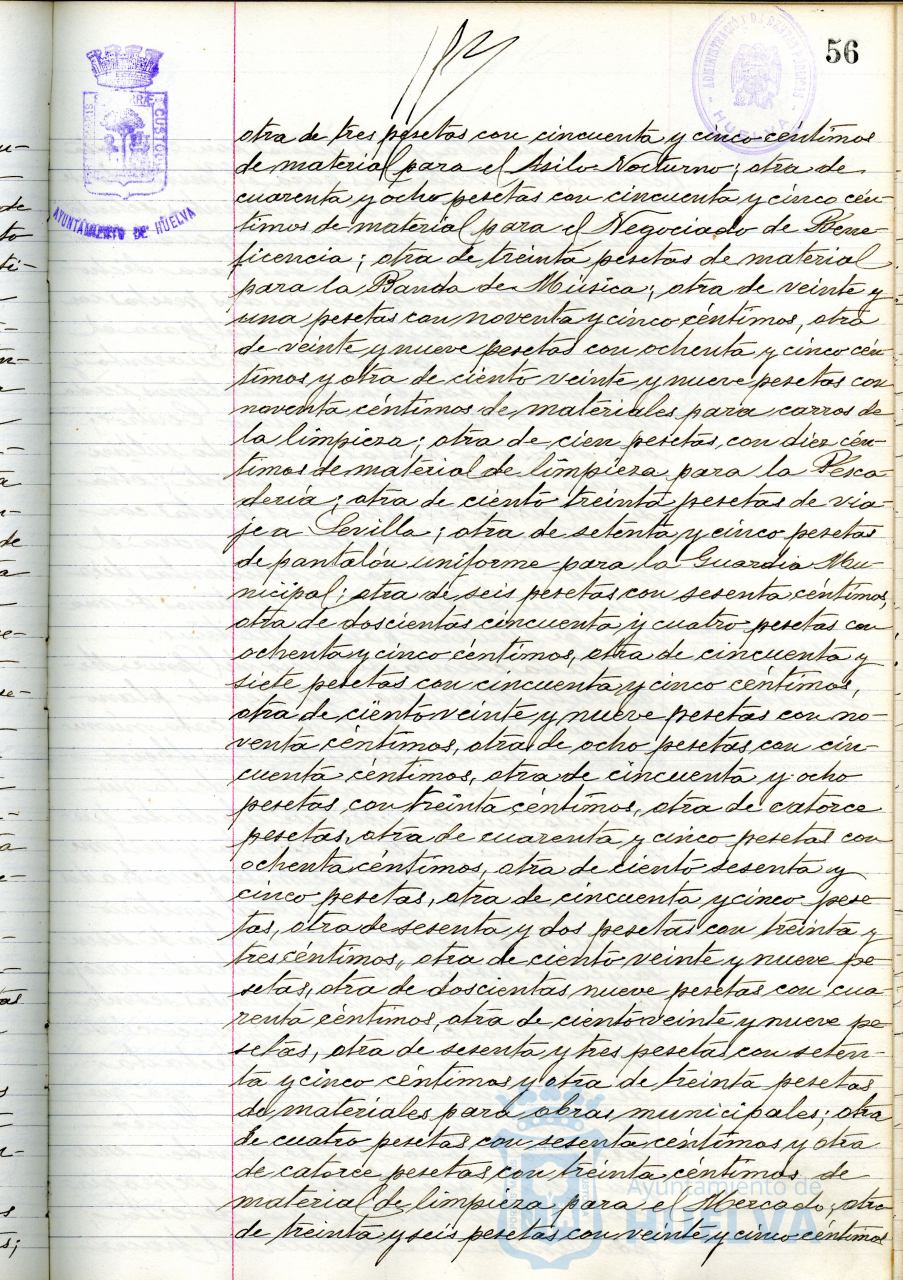 56
AYUNTAMIENTO DE HUELVA
otra de tres pesetas con cincuenta y cinco céntimos
de material para el Asilo Nocturno; otra de
cuarenta y ocho pesetas con cincuenta y cinco cén-
timos de material para el Negociado de Bene-
ficencia; otra de treinta pesetas de material
para la Banda de Música; otra de veinte y
una pesetas con noventa y cinco céntimos, otra
de veinte y nueve pesetas con ochenta y cinco cén-
timos y otra de ciento veinte y nueve pesetas con
noventa céntimos de materiales para carros de
la limpieza; otra de cien pesetas con diez cén-
timos de material de limpieza para la Pesca-
dería; otra de ciento treinta pesetas de via-
je a Sevilla; otra de setenta y cinco pesetas
de pantalón uniforme para la Guardia Mu-
nicipal; otra de seis pesetas con sesenta céntimos,
otra de doscientas cincuenta y cuatro pesetas con
ochenta y cinco céntimos, otra de cincuenta y
siete pesetas con cincuenta y cinco céntimos,
otra de ciento veinte y nueve pesetas con no-
venta céntimos, otra de ocho pesetas con cin-
cuenta céntimos, otra de cincuenta y ocho
pesetas con treinta céntimos, otra de catorce
pesetas, otra de cuarenta y cinco pesetas con
ochenta céntimos, otra de ciento sesenta y
cinco pesetas, otra de cincuenta y cinco pese-
tas, otra de sesenta y dos pesetas con treinta y
tres céntimos, otra de ciento veinte y nueve pe-
setas, otra de doscientas nueve pesetas con cua-
renta céntimos, otra de ciento veinte y nueve pe-
setas, otra de sesenta y tres pesetas con seten-
ta y cinco céntimos y otra de treinta pesetas
de materiales para obras municipales; otra
de cuatro pesetas con sesenta céntimos y otra
de catorce pesetas con treinta céntimos de
material de limpieza para el Mercado, otra
de treinta y seis pesetas con veinte y cinco céntimos
Ayuntamiento de
HUELVA